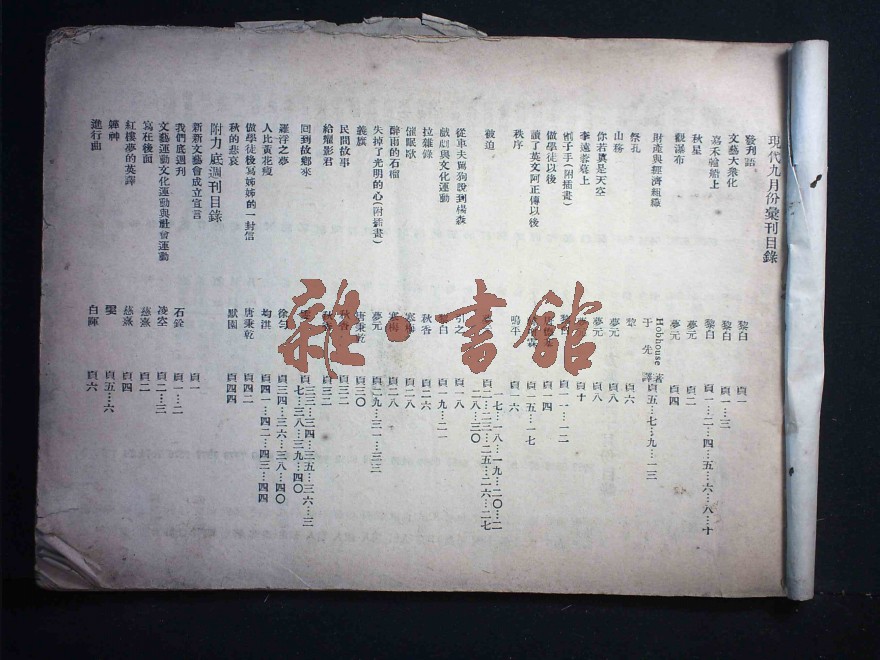 現代九月份彙刊目錄
發刊語 黎白 頁一
文藝大衆化 黎白 頁一…三
嘉禾輪船上 黎白 頁一…二…四…五…六…八…十
秋星 夢元 頁二
觀瀑布 夢元 頁四
財產與經濟組織 Hobhouse 著 于先 譯 頁五…七…九…一三
祭孔 頁六
山務 夢元 頁八
你若真是天空 夢元 頁八
李遠蓉墓上 頁十
劊子手(附插畫) 黎 頁一一…一二
做學徒以後 頁一四
讀了英文阿正傳以後 頁一五…一七
秩序 鳴平 頁一六
被迫 一七…一八…一九…二〇…二 頁二…二三…二五…二六…二七 二八…三〇
從車夫罵狗說到楊森 頁一八
戲劇與文化運動 黎白 頁一九…二一
拉雜錄 秋杳 頁二六
催眠歌 寒梅 頁二八
醉雨的石榴 寒梅 頁二八
失掉了光明的心(附插畫) 夢元 頁二九…三一…三三
義旗 唐秉乾 頁三〇
民間故事 秋杳 頁三二
給耀影君 秋 頁三二
回到故鄉來 頁三三…三四…三五…三六…三 七…三八…三九…四〇
羅浮之夢 徐勻 頁三四…三六…三八…四〇
人比黃花瘦 均淇 頁四一…四二…四三…四四
做學徒後寫姊姊的一封信 唐秉乾 頁四二
秋的悲哀 默園 頁四四
附力底週刊目錄
新新文藝會成立宣言 頁一
我們底週刊 石銓 頁一…二
文藝運動文化運動與社會運動 凌空 頁二…三
寫在後面 慈燕 頁二
紅樓夢的英譯 慈燕 頁四
雙神 頁五…六
進行曲 白暉 頁六
雜·書館